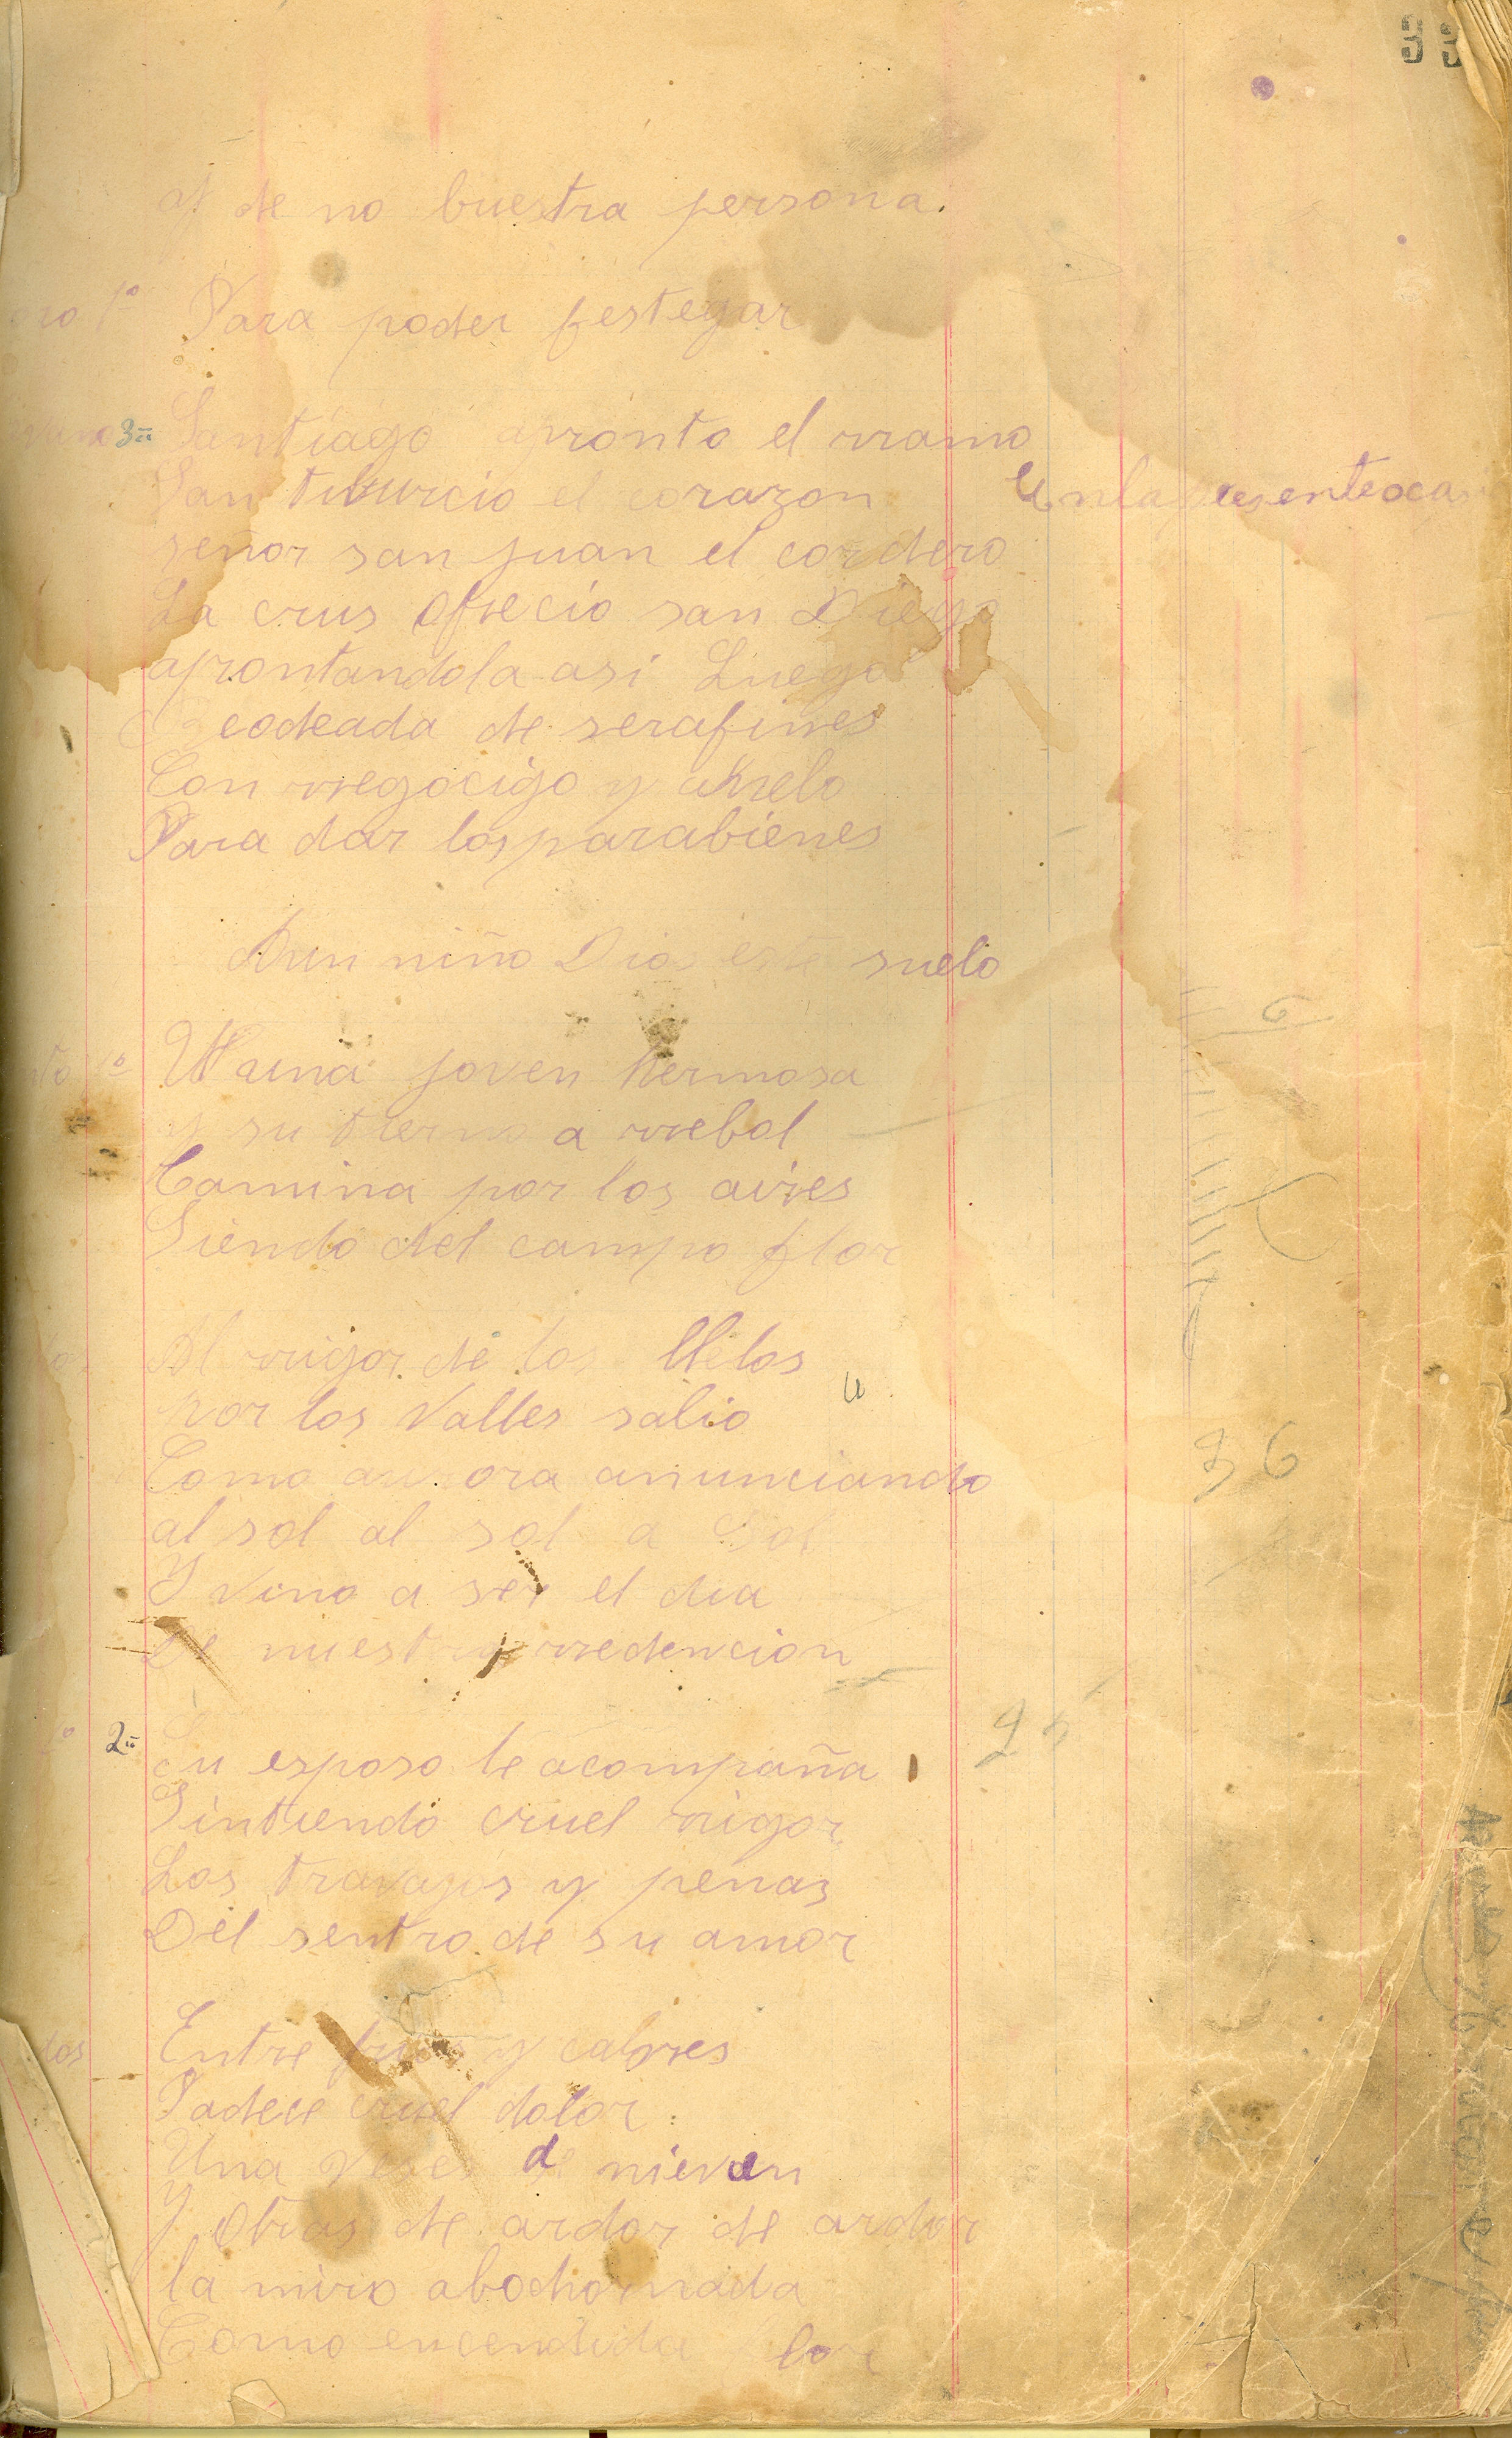 33
y de no buestra persona.
1º Para poder festegar
3ª Santiago apronto el rramo
San tiburcio el corazon En la presente oca
señor san juan el cordero
La crus ofrecio san Diego
aprontandola asi Luego
codeada de serafines
Con rregocigo y anelo
Para dar los parabienes
Aun niño Dios este suelo
1º Una joven hermosa
y su tierno a rrebol
Camina por los aires
Siendo del campo flor
6
Al rrigor de los llelos
Por los Valles salio
Como au ora anunciando
36
al sol al sol a sol
Y vino a ser el dia
De nuestra rredencion
2ª Su esposo le acompaña
25
Sintiendo cruel rrigor
Los travajos y penas
Del sentro de su amor
dos Entre frios y calores
Padece cruel dolor
Una veses de nieven
Y Otras de ardor de ardor
la miro abochornada
Como encendida